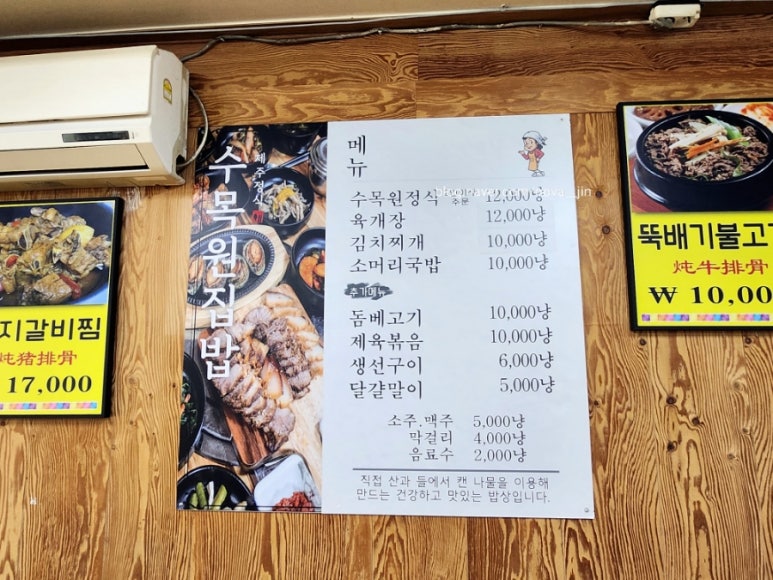 수목원집밥
제주정식
메뉴
수목원정식 주문 12,000냥
육개장 12,000냥
김치찌개 10,000냥
소머리국밥 10,000냥
추가메뉴
돔베고기 10,000냥
제육볶음 10,000냥
생선구이 6,000냥
달걀말이 5,000냥
소주.맥주 5,000냥
막걸리 4,000냥
음료수 2,000냥
직접 산과 들에서 캔 나물을 이용해
만드는 건강하고 맛있는 밥상입니다.
지갈비찜
炖猪排骨
17,000
뚝배기불고기
炖牛排骨
₩ 10,00